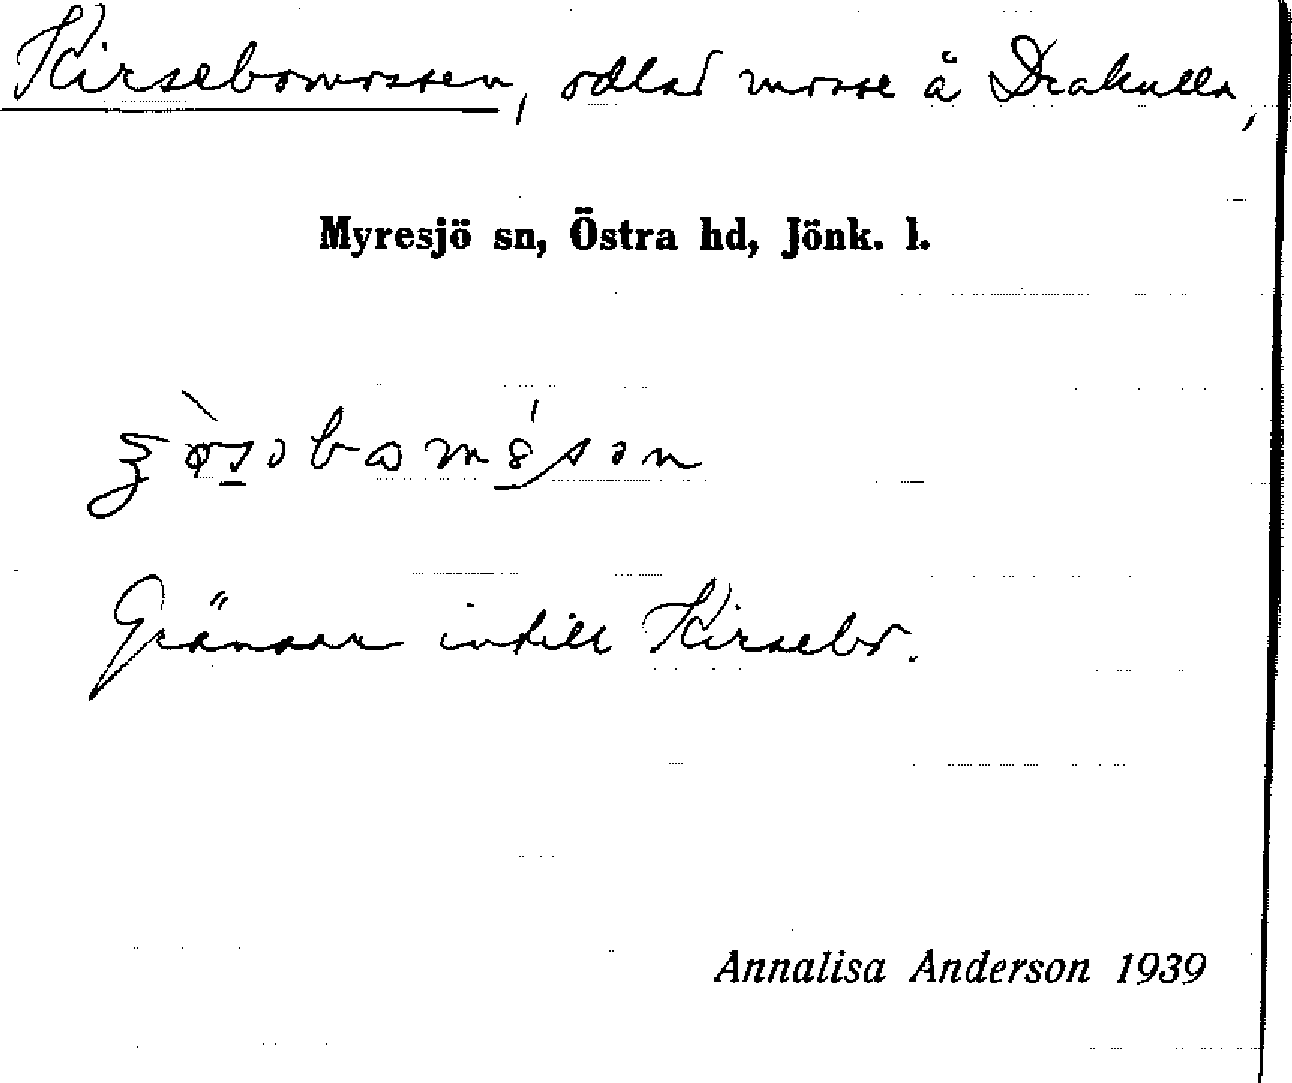 Kirsebomossen, odlad mosse å Drakulla,
Myresjö sn, Östra hd, Jönk. l.
Gränsar intill Kirsebo.
Annalisa Anderson 1939